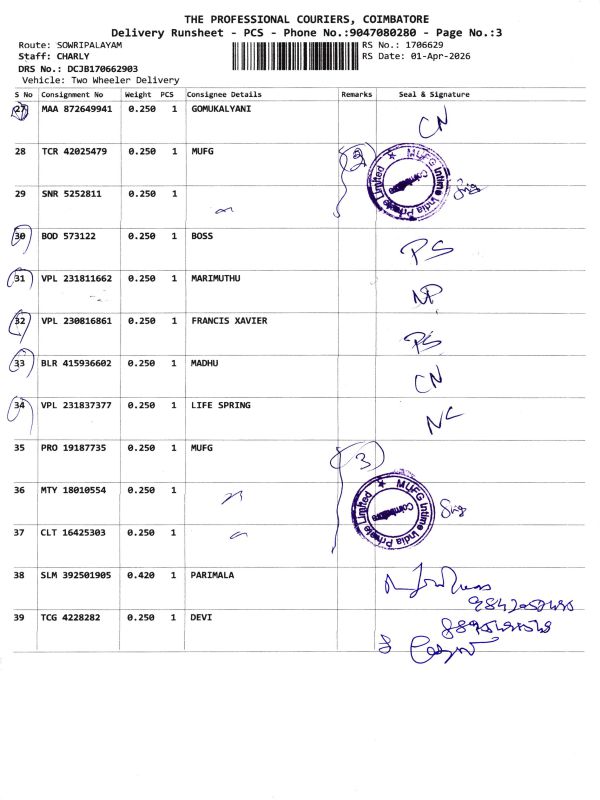 THE PROFESSIONAL COURIERS, COIMBATORE
Delivery Runsheet - PCS - Phone No.:9047080280 - Page No.:3
Route: SOWRIPALAYAM
RS No.: 1706629
Staff: CHARLY
RS Date: 01-Apr-2026
DRS No.: DCJB170662903
Vehicle: Two Wheeler Delivery
S No Consignment No Weight PCS Consignee Details Remarks Seal & Signature
27 MAA 872649941 0.250 1 GOMUKALYANI CN
28 TCR 42025479 0.250 1 MUFG 2
MUFG Intime India Private Limited
Coimbatore
29 SNR 5252811 0.250 1
30 BOD 573122 0.250 1 BOSS PS
31 VPL 231811662 0.250 1 MARIMUTHU NP
32 VPL 230816861 0.250 1 FRANCIS XAVIER PS
33 BLR 415936602 0.250 1 MADHU CN
34 VPL 231837377 0.250 1 LIFE SPRING NC
35 PRO 19187735 0.250 1 MUFG 3
36 MTY 18010554 0.250 1
MUFG Intime India Private Limited
Coimbatore
37 CLT 16425303 0.250 1
38 SLM 392501905 0.420 1 PARIMALA
39 TCG 4228282 0.250 1 DEVI